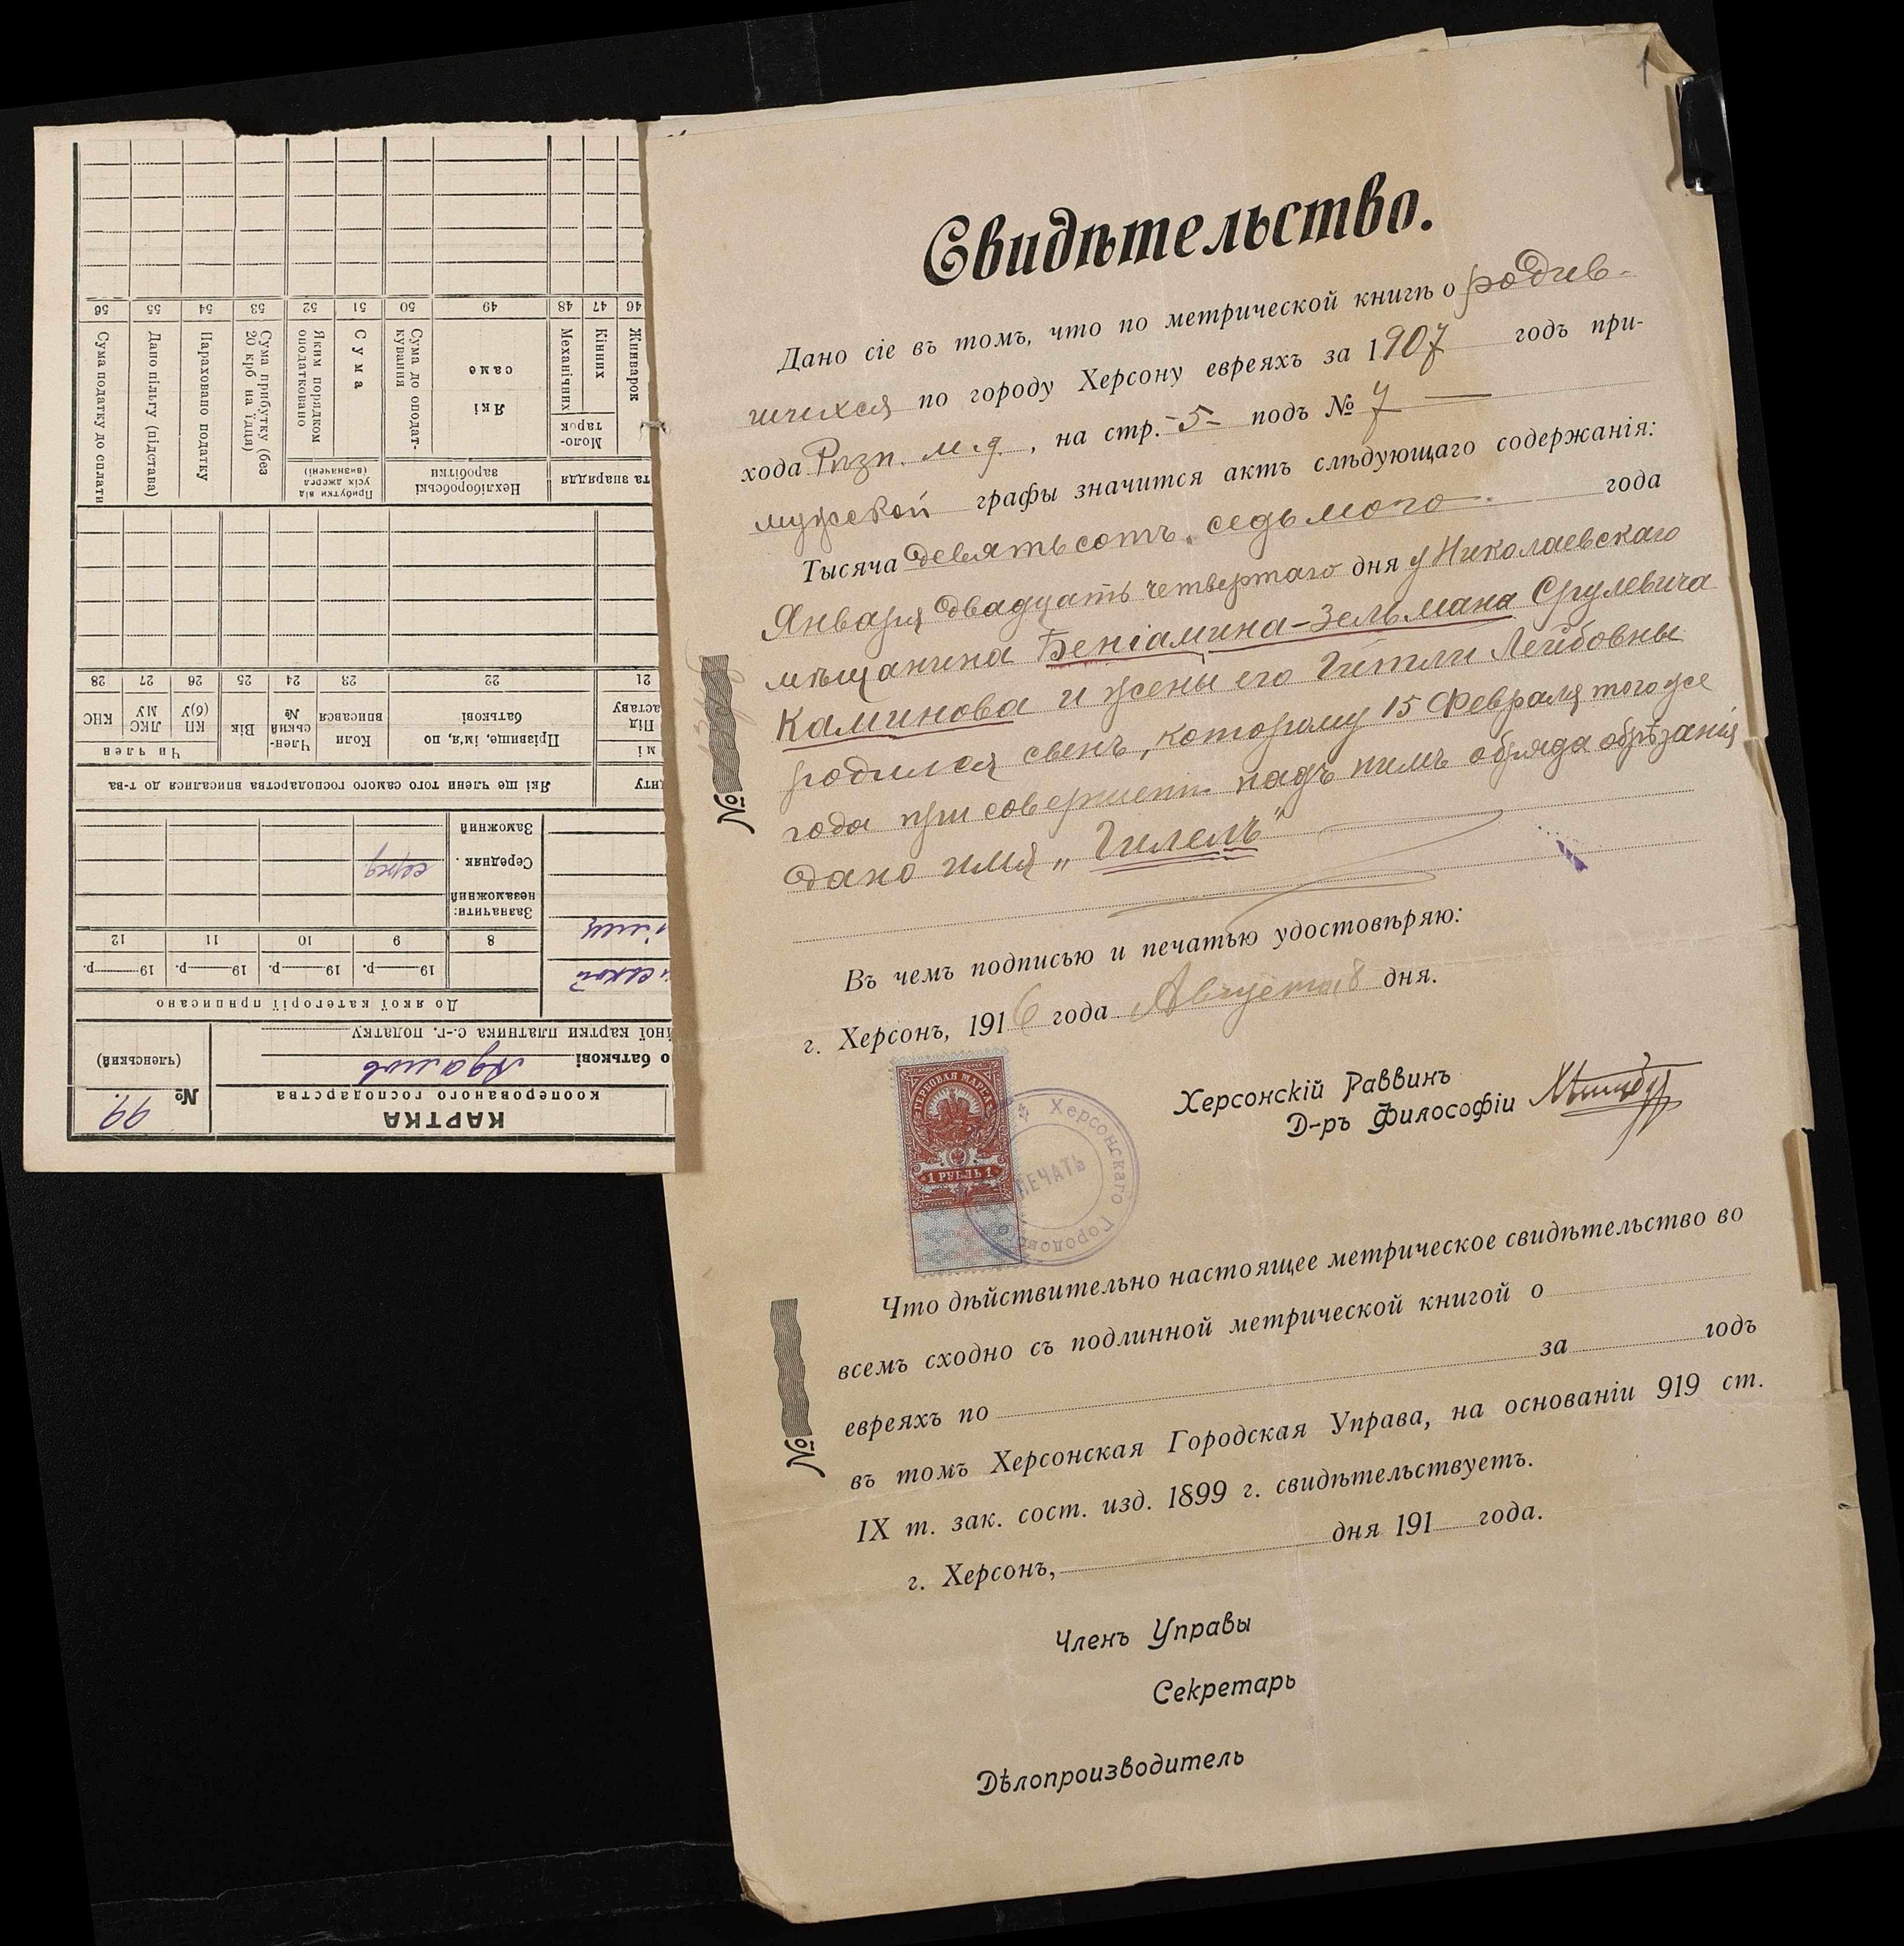 1
Свидѣтельство.
Дано сіе въ томъ, что по метрической книгѣ о родив-
шихся по городу Херсону евреяхъ за 1907 годъ при-
хода Рпзп. м. д., на стр. -5- подъ № 7 —
мужской графы значится актъ слѣдующаго содержанія:
Тысяча девятьсотъ седьмого года
Января двадцать четвертаго дня у Николаевскаго
мѣщанина Беніамина-Зельмана Срулевича
Каминова и жены его Гитли Лейбовны
родился сынъ, которому 15 Февраля того же
года при совершеніи надъ нимъ обряда обрѣзанія
дано имя „Гилель"
№
Въ чемъ подписью и печатью удостовѣряю:
г. Херсонъ, 1916 года Августа 8 дня.
Херсонскій Раввинъ
Д-ръ Философіи
ГЕРБОВАЯ МАРКА
1 РУБЛЬ 1
Херсонскаго Городового
ПЕЧАТЬ
Что дѣйствительно настоящее метрическое свидѣтельство во
всемъ сходно съ подлинной метрической книгой о
евреяхъ по за годъ
въ томъ Херсонская Городская Управа, на основаніи 919 ст.
IX т. зак. сост. изд. 1899 г. свидѣтельствуетъ.
г. Херсонъ, дня 191 года.
№
Членъ Управы
Секретарь
Дѣлопроизводитель
КАРТКА
кооперованого господарства
№ 99
(членський)
о батькові Адамов
ної картки платника с.-г. податку
До якої категорії приписано
19 р. 19 р. 19 р. 19 р.
8 9 10 11 12
Зазначити:
незаможний
Середняк серед.
Заможний
Які ще члени того самого господарства вписалися до т-ва
Прізвище, ім'я, по батькові
Коли вписався
Член-ський №
Вік
Чи член
КП (б)У
ЛКС МУ
КНС
21 22 23 24 25 26 27 28
та знаряддя
Жниварок
Моло-тарок
Кінних
Механічних
Нехліборобські заробітки
Які саме
Сума до оподат-кування
Прибутки від усіх джерел (визначені)
Сума
Яким порядком оподатковано
Сума прибутку (без 20 крб на їдця)
Нараховано податку
Дано пільгу (підстава)
Сума податку до сплати
46 47 48 49 50 51 52 53 54 55 56